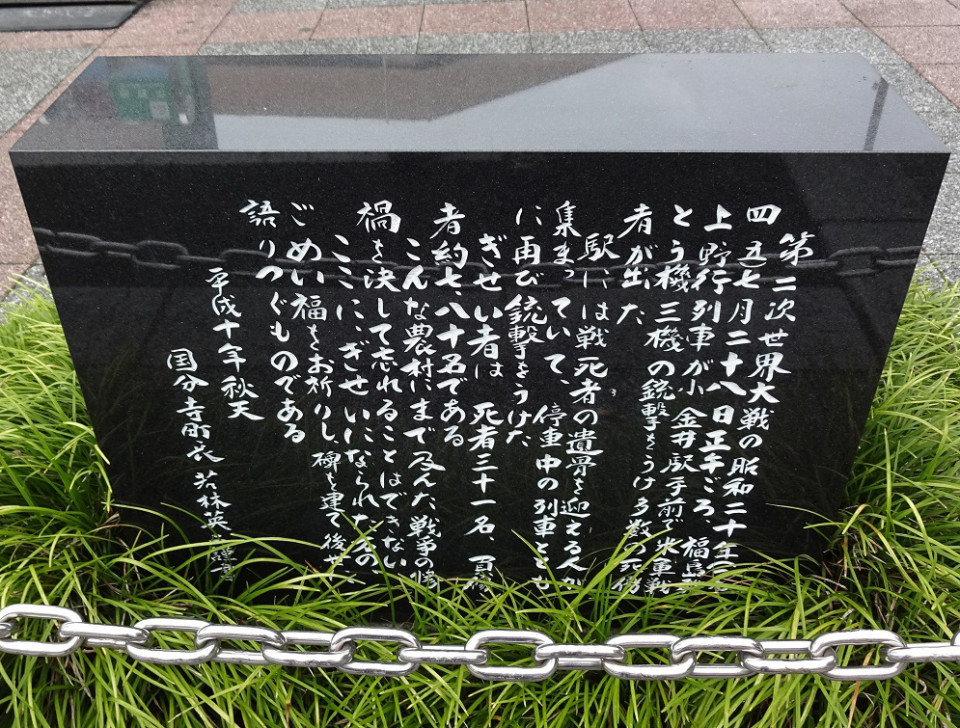 第二次世界大戦の昭和二十年(一九
四五)七月二十八日正午ごろ、福島発
上野行列車が小金井駅手前で米軍戦
とう機三機の銃撃をうけ多数の死傷
者が出た
駅には戦死者の遺骨を迎える人が
集まっていて、停車中の列車ととも
に再び銃撃をうけた
ぎせい者は 死者三十一名、負傷
者約七八十名である
こんな農村にまで及んだ戦争の惨
禍を決して忘れることはできない
ここに、ぎせいになられた方の、
ごめい福をお祈りし、碑を建て後世に
語りつぐものである
平成十年秋天
国分寺町長 若林英二